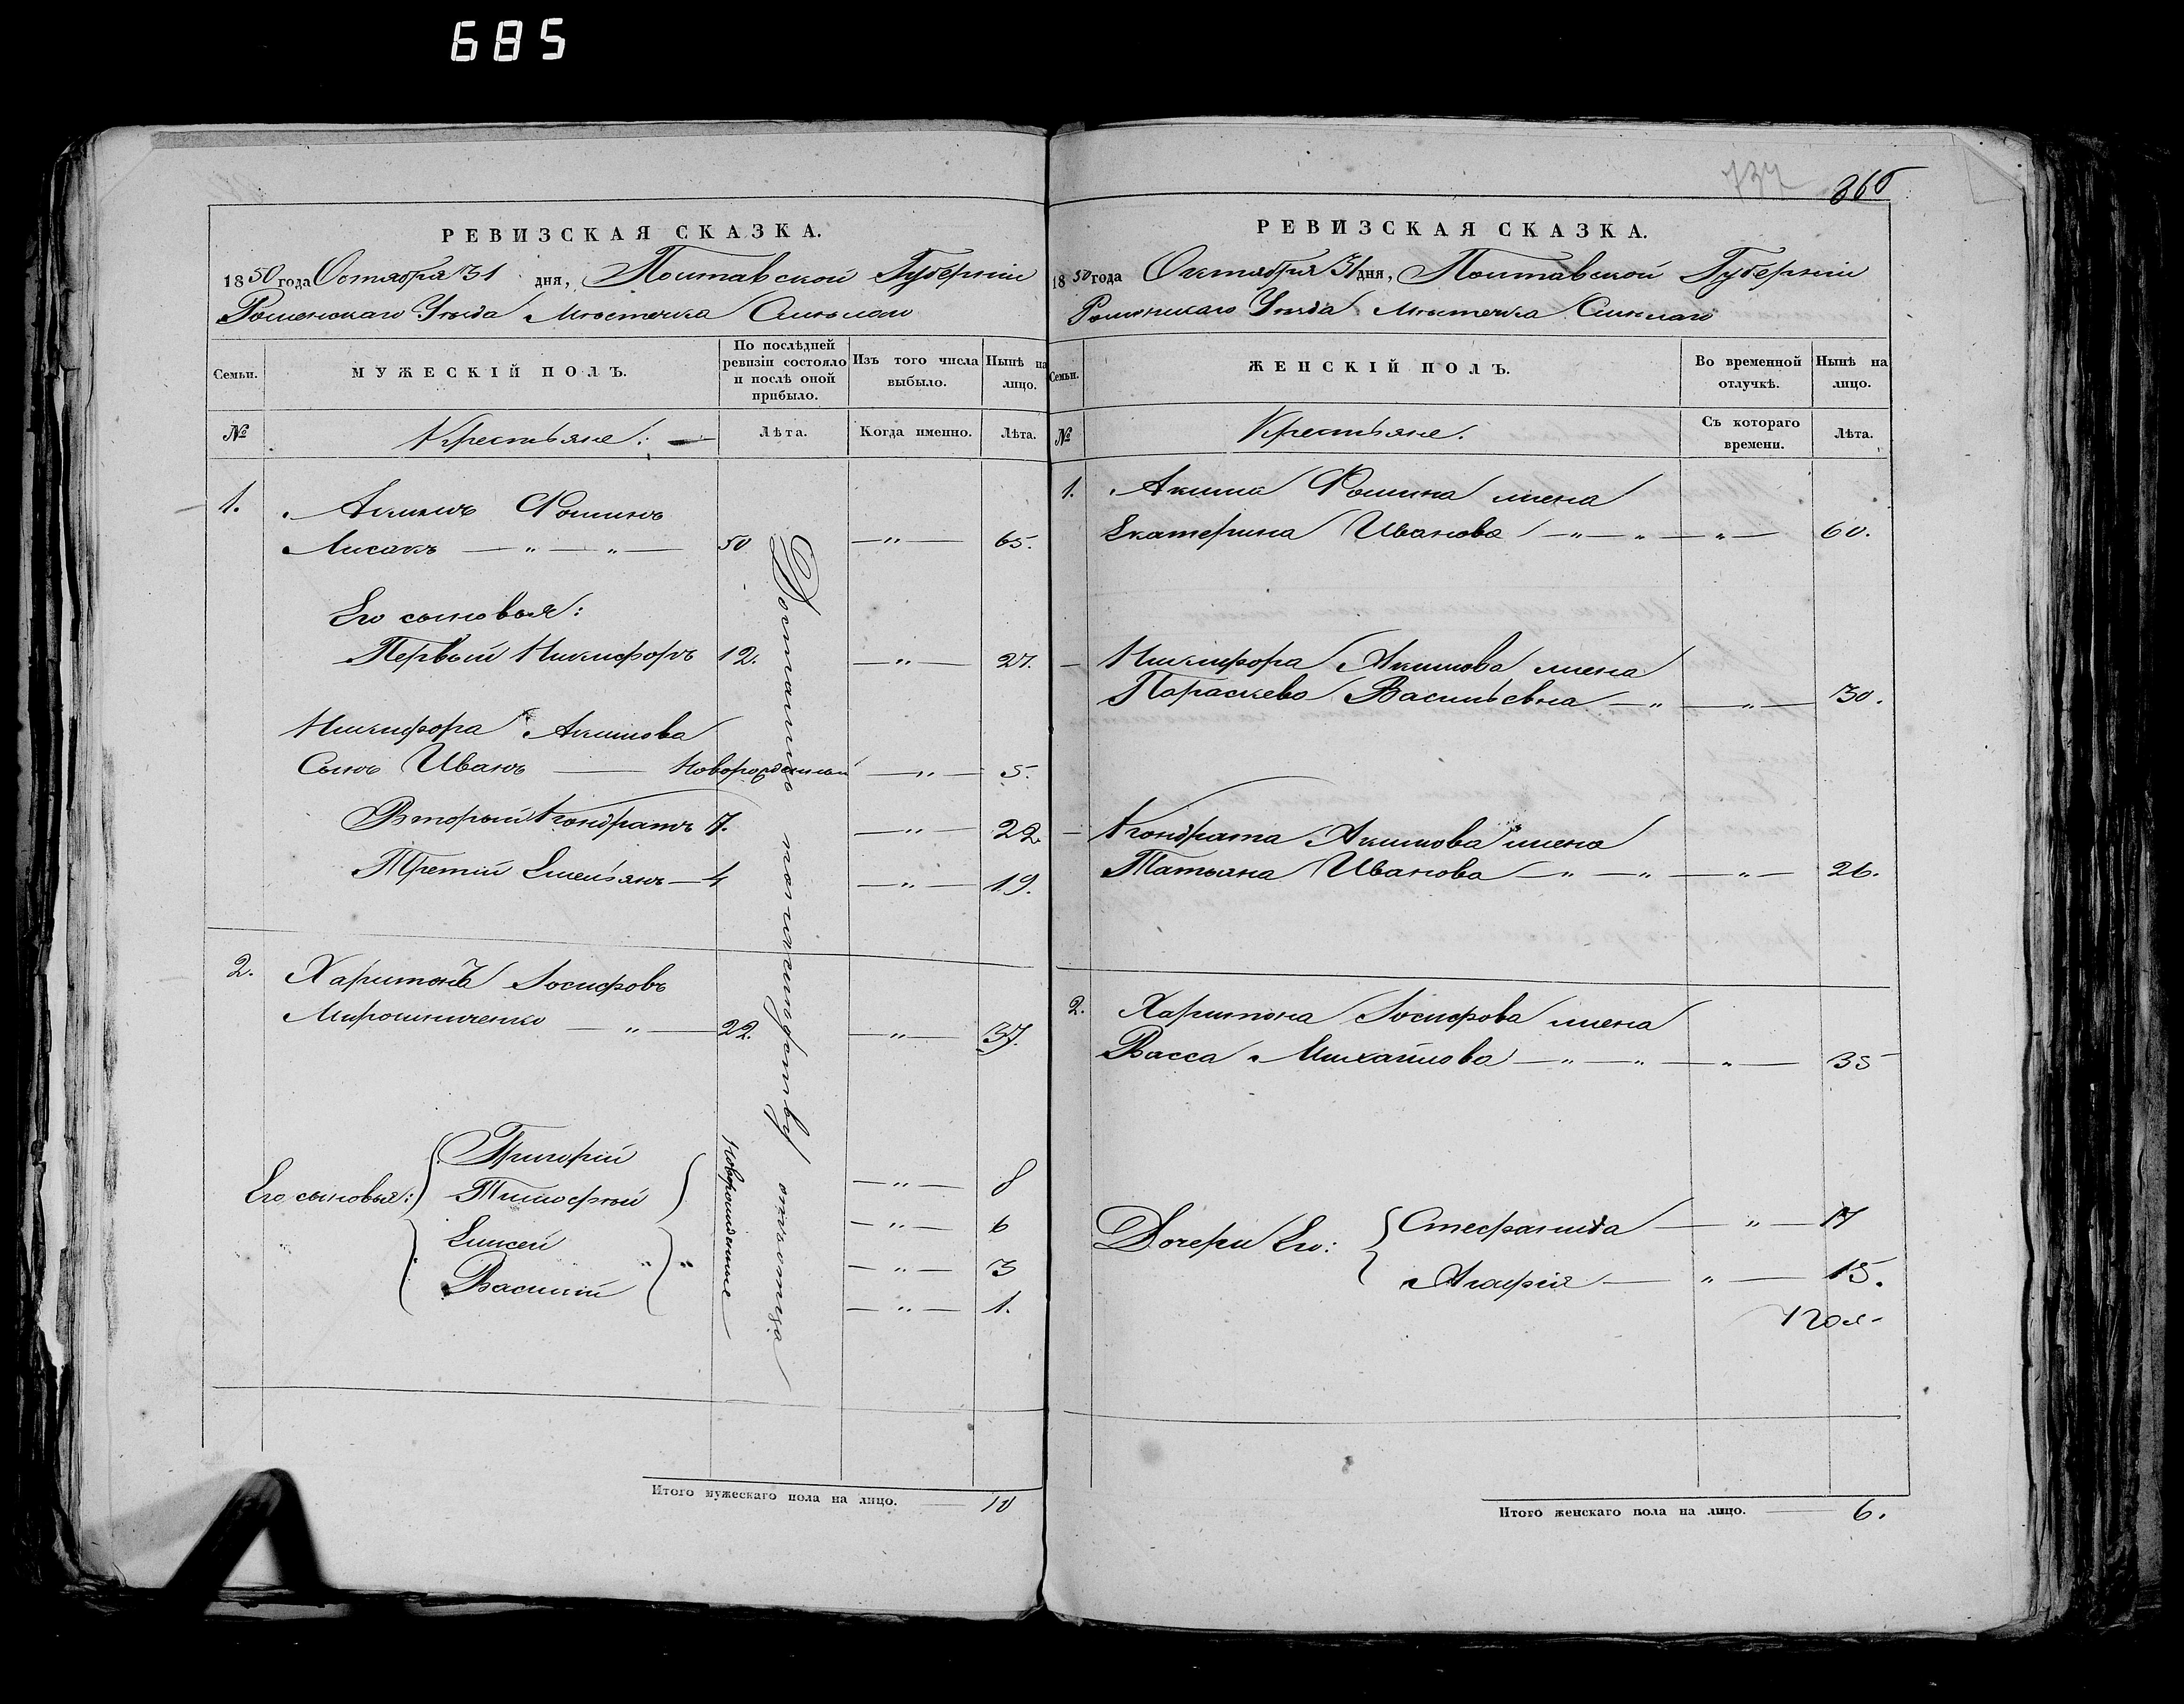 685
737
366
РЕВИЗСКАЯ СКАЗКА.
1850 года Октября 31 дня, Полтавской Губерніи
Роменскаго Уѣзда Мѣстечка Смѣлаго
Семьи.
МУЖЕСКІЙ ПОЛЪ.
По послѣдней ревизіи состояло и послѣ оной прибыло.
Изъ того числа выбыло.
Нынѣ на лицо.
№
Крестьяне:
Лѣта.
Когда именно.
Лѣта.
1. Акимъ Фоминъ
Лисакъ — " — " — 50 — " — 65.
Его сыновья:
Первый Никифоръ 12. — " — 27.
Никифора Акимова
Сынъ Иванъ — Новорожденный — " — 5.
Вторый Кондратъ 7. — " — 22
Третій Емельянъ — 4 — " — 19.
Достались по наслѣдству отъ отца
2. Харитонъ Іосифовъ
Мирошниченко — " — 22. — " — 37.
Его сыновья:
Григорій — " — 8
Тимофѣй — " — 6
Елисей " " — " — 3
Василій — " — 1.
Новорожденные
Итого мужескаго пола на лицо. — 10
РЕВИЗСКАЯ СКАЗКА.
1850 года Октября 31 дня, Полтавской Губерніи
Роменскаго Уѣзда Мѣстечка Смѣлаго
Семьи.
ЖЕНСКІЙ ПОЛЪ.
Во временной отлучкѣ.
Нынѣ на лицо.
№
Крестьяне.
Съ котораго времени.
Лѣта.
1. Акима Фомина жена
Екатерина Иванова — " — " — " — 60.
— Никифора Акимова жена
Параскева Васильевна — " — " — 30.
— Кондрата Акимова жена
Татьяна Иванова — " — " — " — 26.
2. Харитона Іосифова жена
Васса Михайлова — " — " — " — 35
Дочери Его:
Стефанида — " — 17
Агафія — " — 15.
Итого женскаго пола на лицо. — 6.